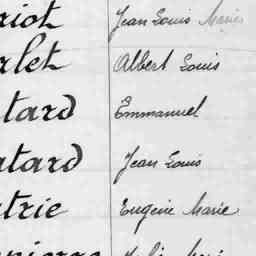 riot Jean Louis Marie
rlet Albert Louis
tard Emmanuel
atard Jean Louis
trie Eugène Marie